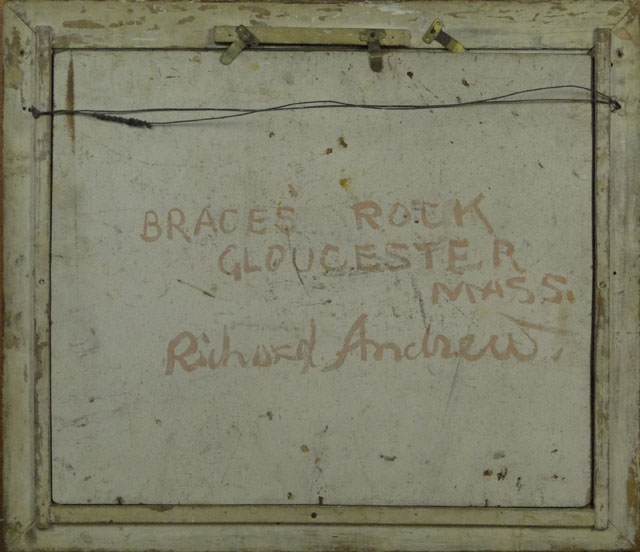 BRACES ROCK
GLOUCESTER
MASS.
Richard Andrew.